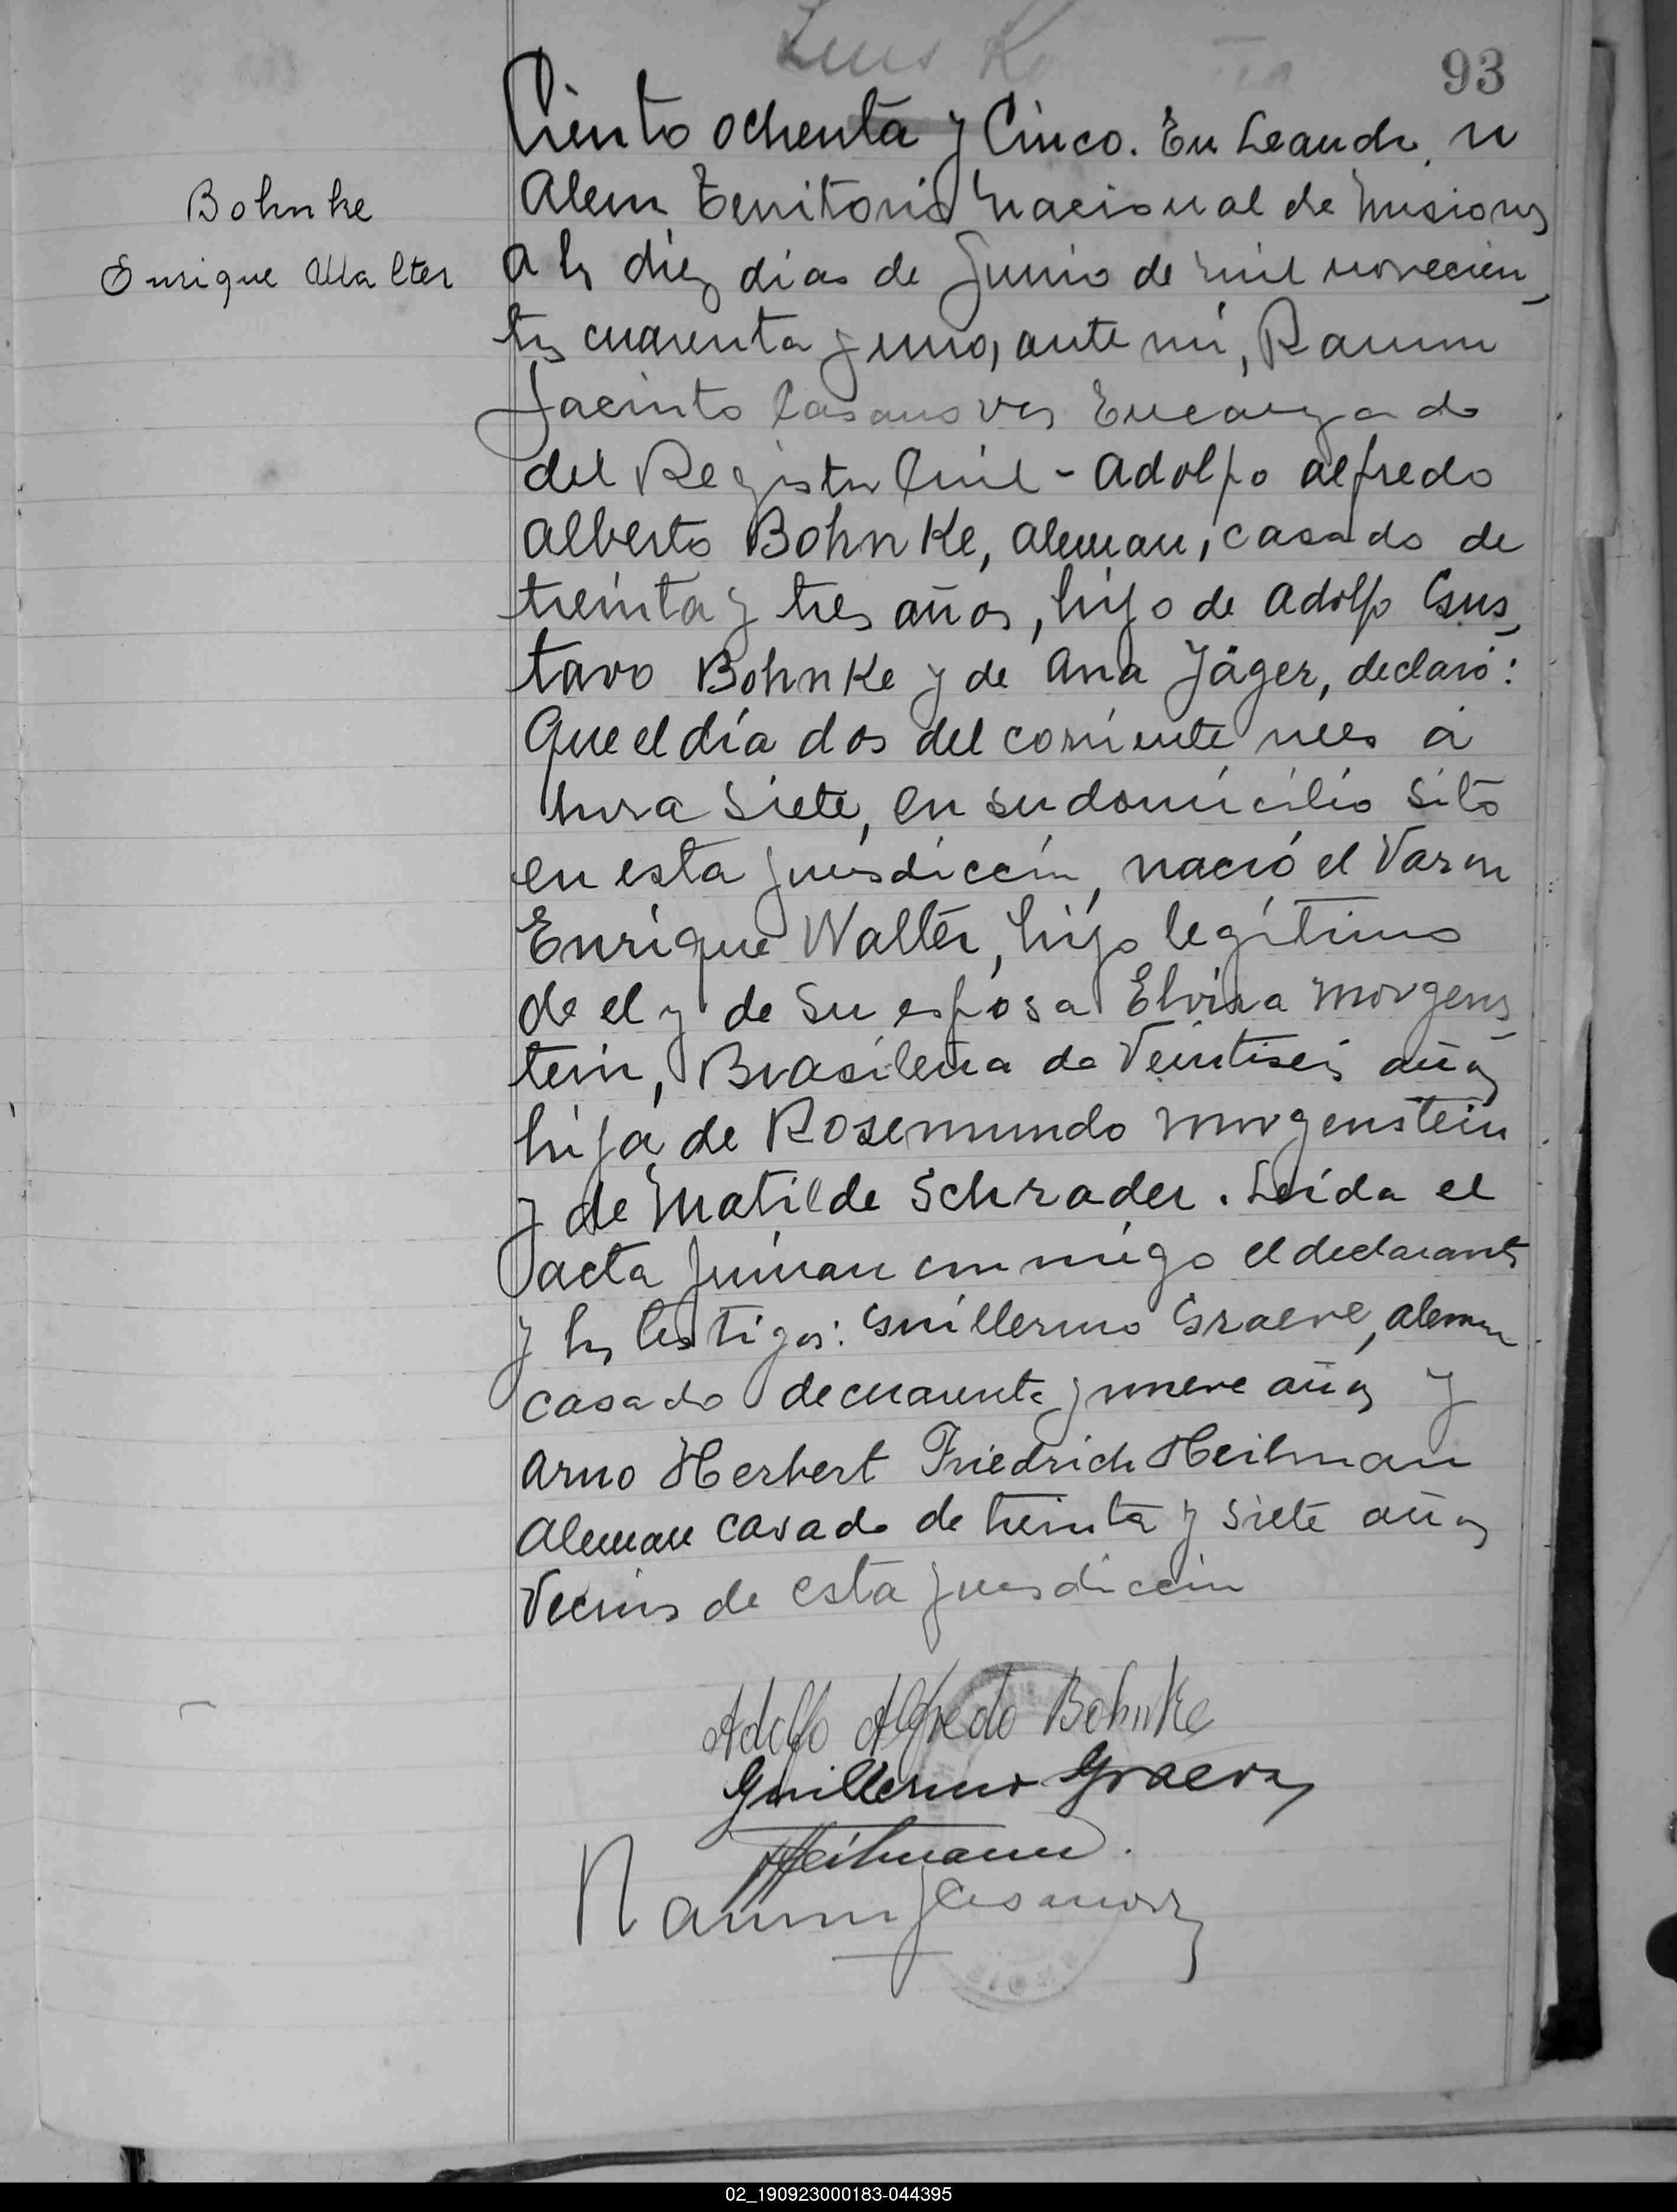 93
Ciento ochenta y Cinco. En Leandro N
Bohnke
Enrique Walter
Alem Territorio Nacional de Misiones
a los diez dias de Junio de mil novecien_
tos cuarenta y uno, ante mi, Ramon
Jacinto Casanoves Encargado
del Registro Civil - Adolfo Alfredo
Alberto Bohnke, Aleman, casado de
treinta y tres años, hijo de Adolfo Gus_
tavo Bohnke y de Ana Jäger, declaró:
Que el día dos del corriente mes a
hora siete, en su domicilio sito
en esta jurisdiccion, nació el Varon
Enrique Walter, hijo legítimo
de el y de su esposa Elvira Morgens_
tein, Brasileña de Veintiseis años
hija de Rosemundo Morgenstein
y de Matilde Schrader. Leida el
acta firman conmigo el declarante
y los testigos: Guillermo Graeve, aleman
casado de cuarenta y nueve años y
Arno Herbert Friedrich Heilman
Aleman casado de treinta y siete años
Vecinos de esta jurisdiccion
Adolfo Alfredo Bohnke
Guillermo Graeve
Heilmann.
Ramon J Casanoves
02_190923000183-044395